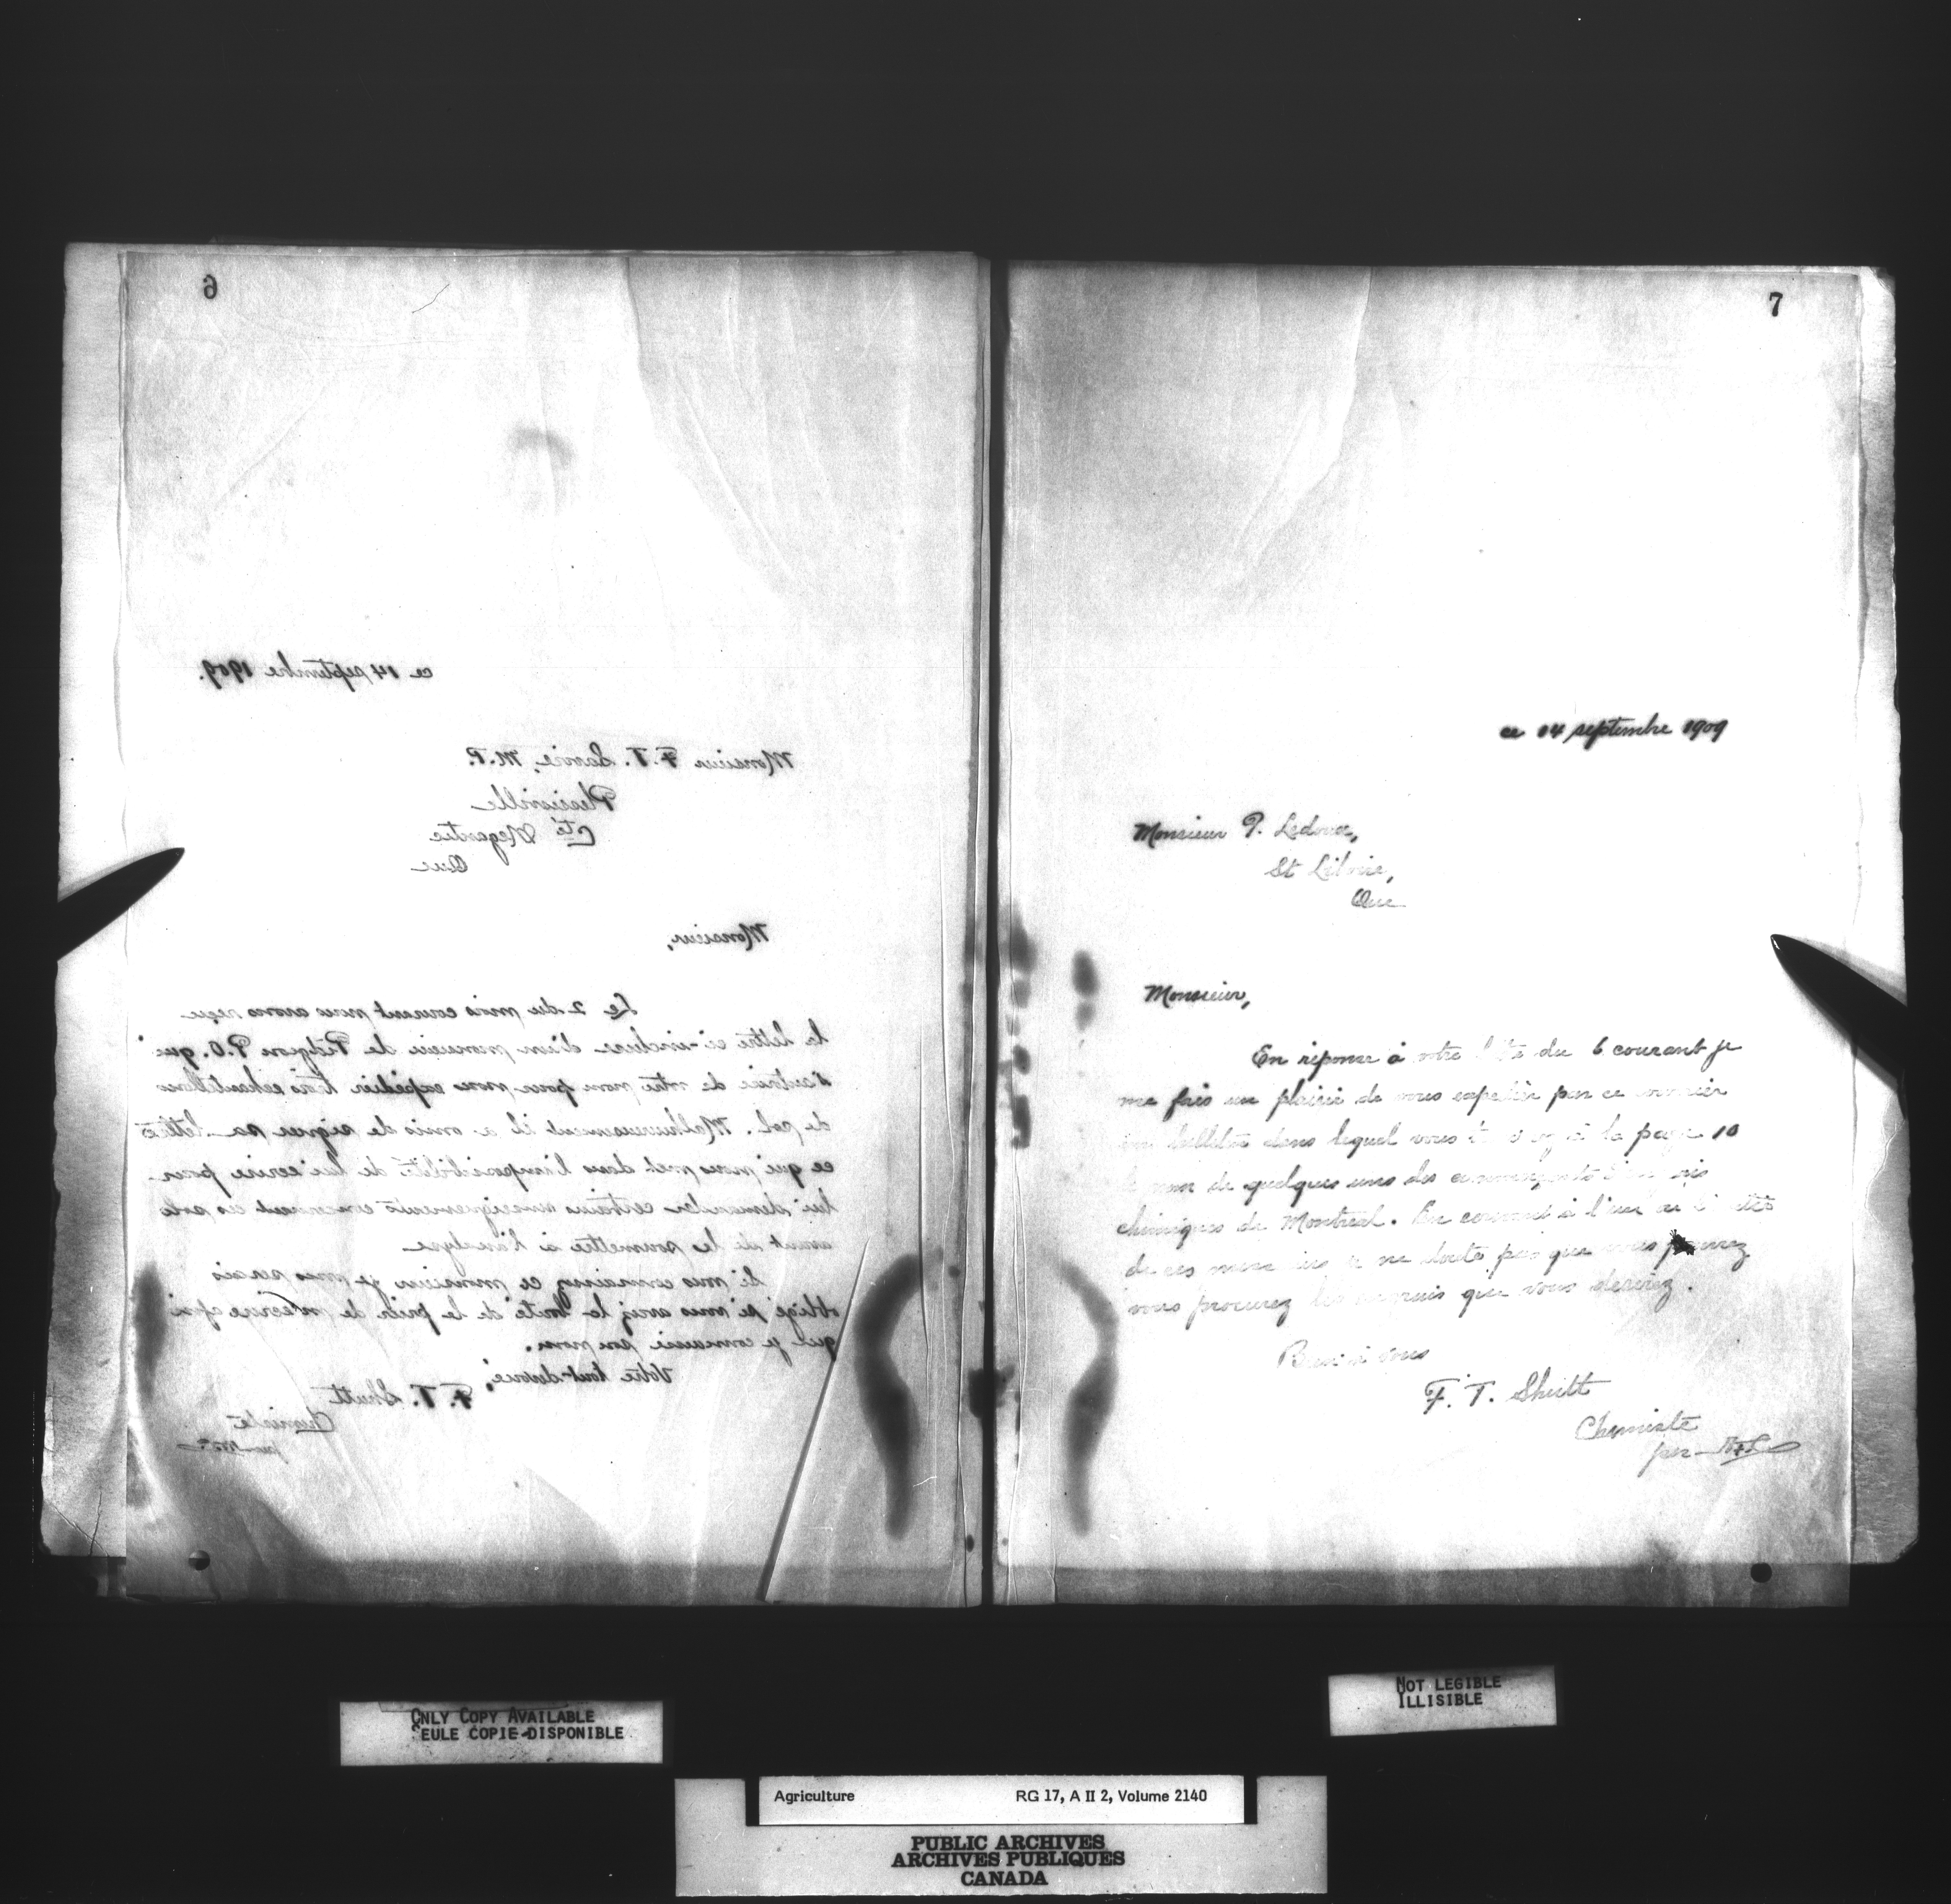 6
ce 14 septembre 1909.
Monsieur F. T. Savoie, M.P.
Plessisville
Cté Megantic
Que
Monsieur,
Le 2 du mois courant nous avons reçu
la lettre ci-incluse d'un monsieur de P.O. qui
s'autorise de votre nom pour nous expédier trois echantillons
de sol. Malheureusement il a omis de signer sa lettre
ce qui nous met dans l'impossibilité de lui ecrire pour
lui demander certains renseignements concernant ces sols
avant de les soumettre à l'analyse.
Si vous connaissez ce monsieur je vous serais
obligé si vous aviez la bonté de le prier de m'écrire afin
que je connaisse son nom.
Votre tout devoué,
F. T. Shutt
Chemiste
per
7
ce 14 septembre 1909
Monsieur P. Ledoux,
St Liboire,
Que
Monsieur,
En réponse à votre du 6 courant je
me fais un plaisir de vous expedier par ce courrier
un bulletin dans lequel vous à la page 10
le nom de quelques uns des
chimiques de Montreal. En à l'un
de ces je ne doute pas que vous pourrez
vous procurez les engrais que vous desirez.
Bien à vous
F. T. Shutt
Chemiste
per
ONLY COPY AVAILABLE
SEULE COPIE DISPONIBLE
NOT LEGIBLE
ILLISIBLE
Agriculture RG 17, A II 2, Volume 2140
PUBLIC ARCHIVES
ARCHIVES PUBLIQUES
CANADA